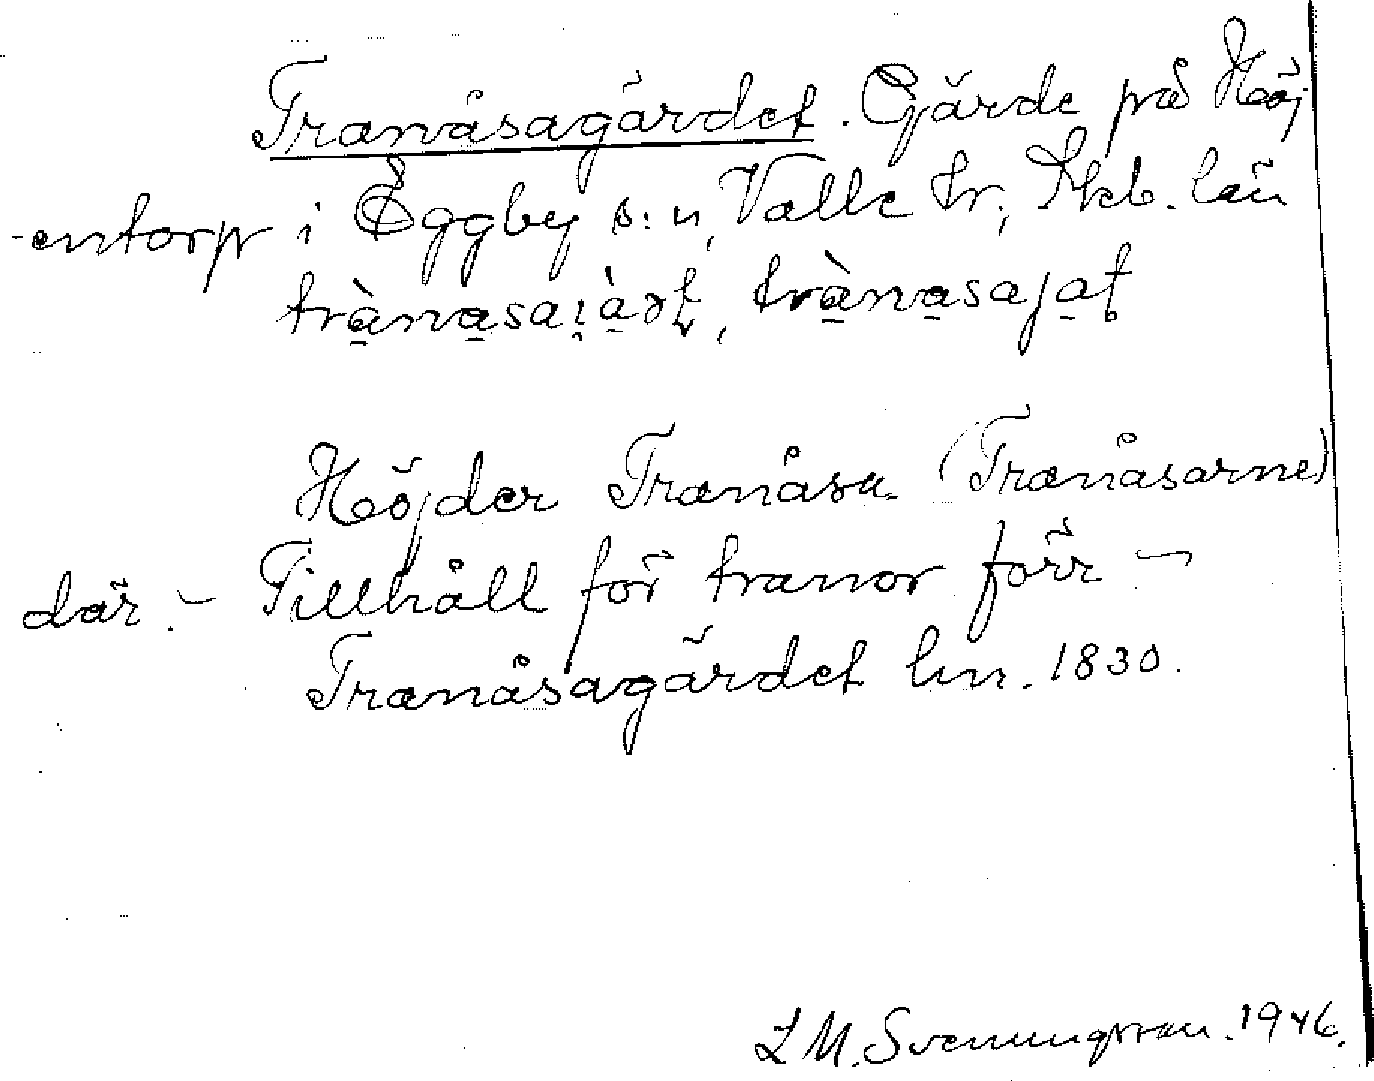 Tranåsagärdet. Gärde på Höj
-entorp i Eggby s:n, Valle hr; Skb. län
trànasajàt, trànasajat
Höjder Tranåsa. (Tranåsarne)
där. - Tillhåll för tranor förr -
Tranåsagärdet lm. 1830.
L M. Svenungsson. 1946.